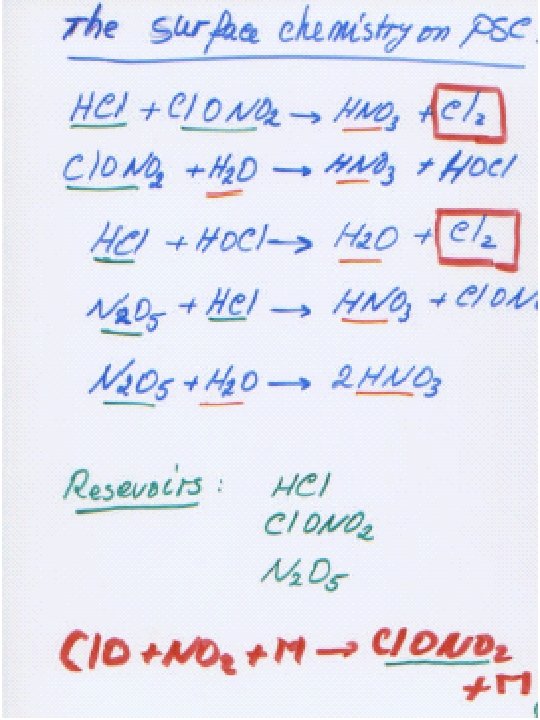 The surface chemistry on PSC
HCl + ClONO₂ → HNO₃ + Cl₂
ClONO₂ + H₂O → HNO₃ + HOCl
HCl + HOCl → H₂O + Cl₂
N₂O₅ + HCl → HNO₃ + ClON
N₂O₅ + H₂O → 2HNO₃
Resevoirs : HCl
ClONO₂
N₂O₅
ClO + NO₂ + M → ClONO₂
+ M